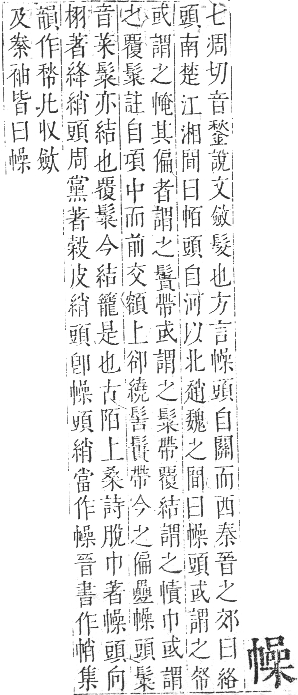 幧
七凋切音鍫說文斂髮也方言幧頭自關而西秦晉之郊曰絡
頭南楚江湘間曰帞頭自河以北趙魏之間曰幧頭或謂之帤
或謂之㡋其偏者謂之鬢帶或謂之䰂帶覆結謂之幘巾或謂
之覆䰂註自項中而前交額上卻繞髻鬢帶今之偏疊幧頭䰂
音菜䰂亦結也覆䰂今結籠是也古陌上桑詩脫巾著幧頭向
栩著絳綃頭周黨著穀皮綃頭卽幧頭綃當作幧晉書作帩集
韻作凡収斂
及袖皆曰幧